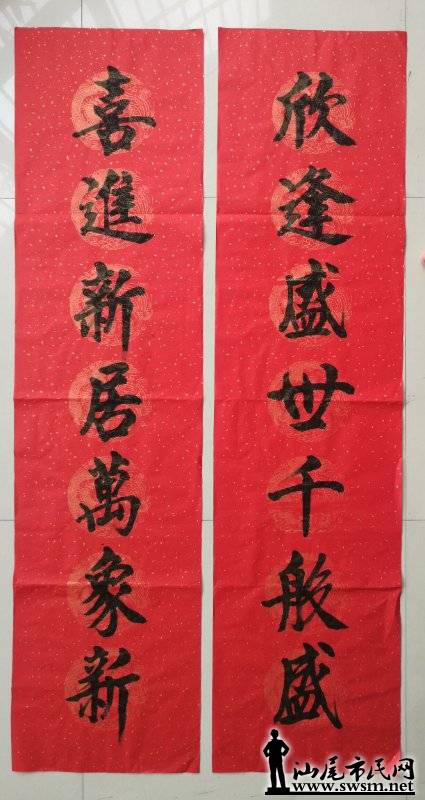 欣逢盛世千般盛
喜進新居萬象新
汕尾市民网
www.swsm.net